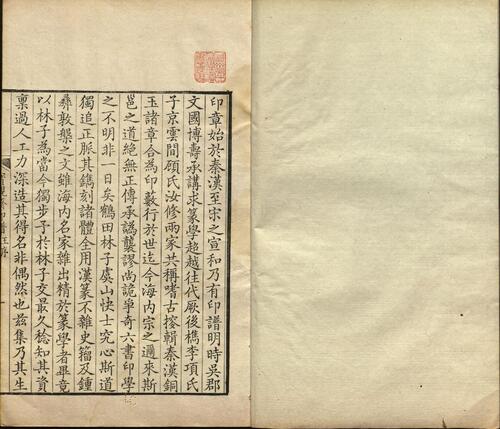 印章始於秦漢至宋之宣和乃有印譜明時吳郡
文國博壽承講求篆學超越往代厥後檇李項氏
子京雲間顧氏汝修兩家共稱嗜古搜輯秦漢銅
玉諸章合為印藪行於世迄今海內宗之邇來斯
邕之道絕無正傳承譌襲謬尚詭爭奇六書印學
之不明非一日矣鶴田林子虞山快士究心斯道
獨追正脈其鐫刻諸體全用漢篆不雜史籀及鍾
彝敦槃之文雖海内名家雜出精於篆學者畢竟
以林子為當今獨步予於林子交最久稔知其資
稟過人工力深造其得名非偶然也茲集乃其生